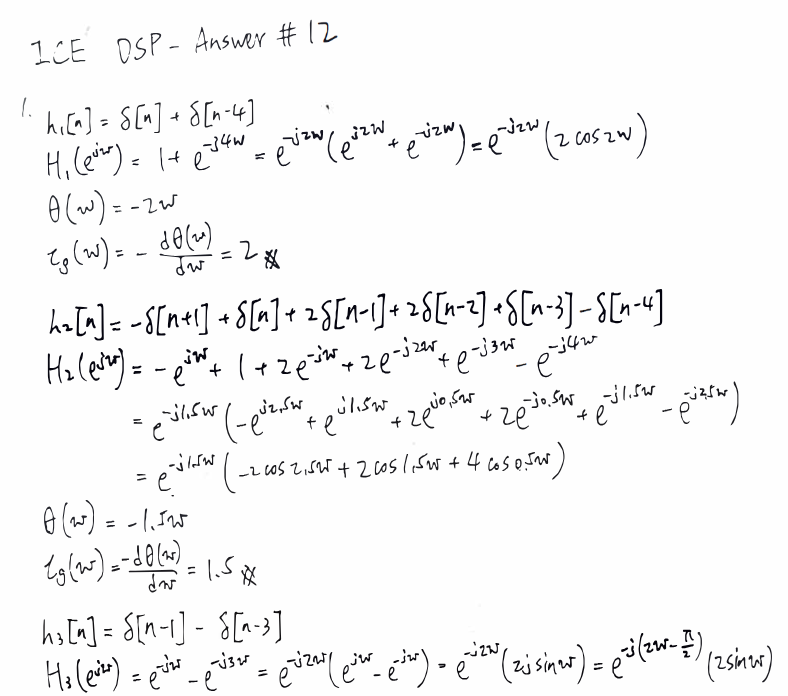 ICE DSP - Answer # 12
1. h₁[n] = δ[n] + δ[n-4]
H₁(e^{jw}) = 1 + e^{-j4w} = e^{-j2w}(e^{j2w} + e^{-j2w}) = e^{-j2w}(2 cos 2w)
θ(w) = -2w
τg(w) = - dθ(w)/dw = 2
h₂[n] = -δ[n+1] + δ[n] + 2δ[n-1] + 2δ[n-2] + δ[n-3] - δ[n-4]
H₂(e^{jw}) = -e^{jw} + 1 + 2e^{-jw} + 2e^{-j2w} + e^{-j3w} - e^{-j4w}
= e^{-j1.5w}(-e^{j2.5w} + e^{j1.5w} + 2e^{j0.5w} + 2e^{-j0.5w} + e^{-j1.5w} - e^{-j2.5w})
= e^{-j1.5w}(-2 cos 2.5w + 2 cos 1.5w + 4 cos 0.5w)
θ(w) = -1.5w
τg(w) = -dθ(w)/dw = 1.5
h₃[n] = δ[n-1] - δ[n-3]
H₃(e^{jw}) = e^{-jw} - e^{-j3w} = e^{-j2w}(e^{jw} - e^{-jw}) = e^{-j2w}(2j sin w) = e^{-j(2w - π/2)}(2 sin w)